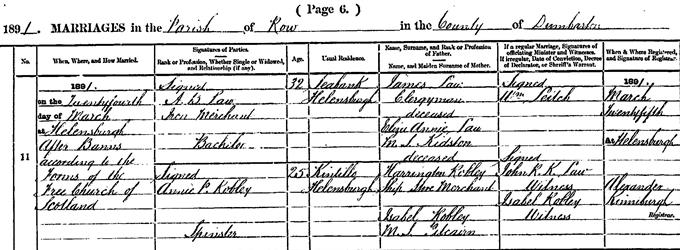 ( Page 6. )
1891. MARRIAGES in the Parish of Row in the County of Dumbarton
No.
When, Where, and How Married.
Signatures of Parties.
Rank or Profession, Whether Single or Widowed, and Relationship (if any).
Age.
Usual Residence.
Name, Surname, and Rank or Profession of Father.
Name, and Maiden Surname of Mother.
If a regular Marriage, Signatures of officiating Minister and Witnesses.
If irregular, Date of Conviction, Decree of Declarator, or Sheriff's Warrant.
When & Where Registered, and Signature of Registrar.
11
1891.
on the Twentyfourth
day of March
at Helensburgh
After Banns
according to the
Forms of the
Free Church of
Scotland
Signed
A. B Law
Iron Merchant
Bachelor
Signed
Annie P. Kobley
Spinster
32
25
Seabank
Helensburgh
Kintillo
Helensburgh
James Law
Clergyman
deceased
Eliza Annie Law
M. S. Kidston
deceased
Harrington Kobley
Ship Store Merchant
Isabel Kobley
M. S. Pitcairn
Signed
Wm Leitch
Signed
John R. K. Law
Witness
Isabel Kobley
Witness
1891.
March
Twentyfifth
at Helensburgh
Alexander
Kinniburgh
Registrar.